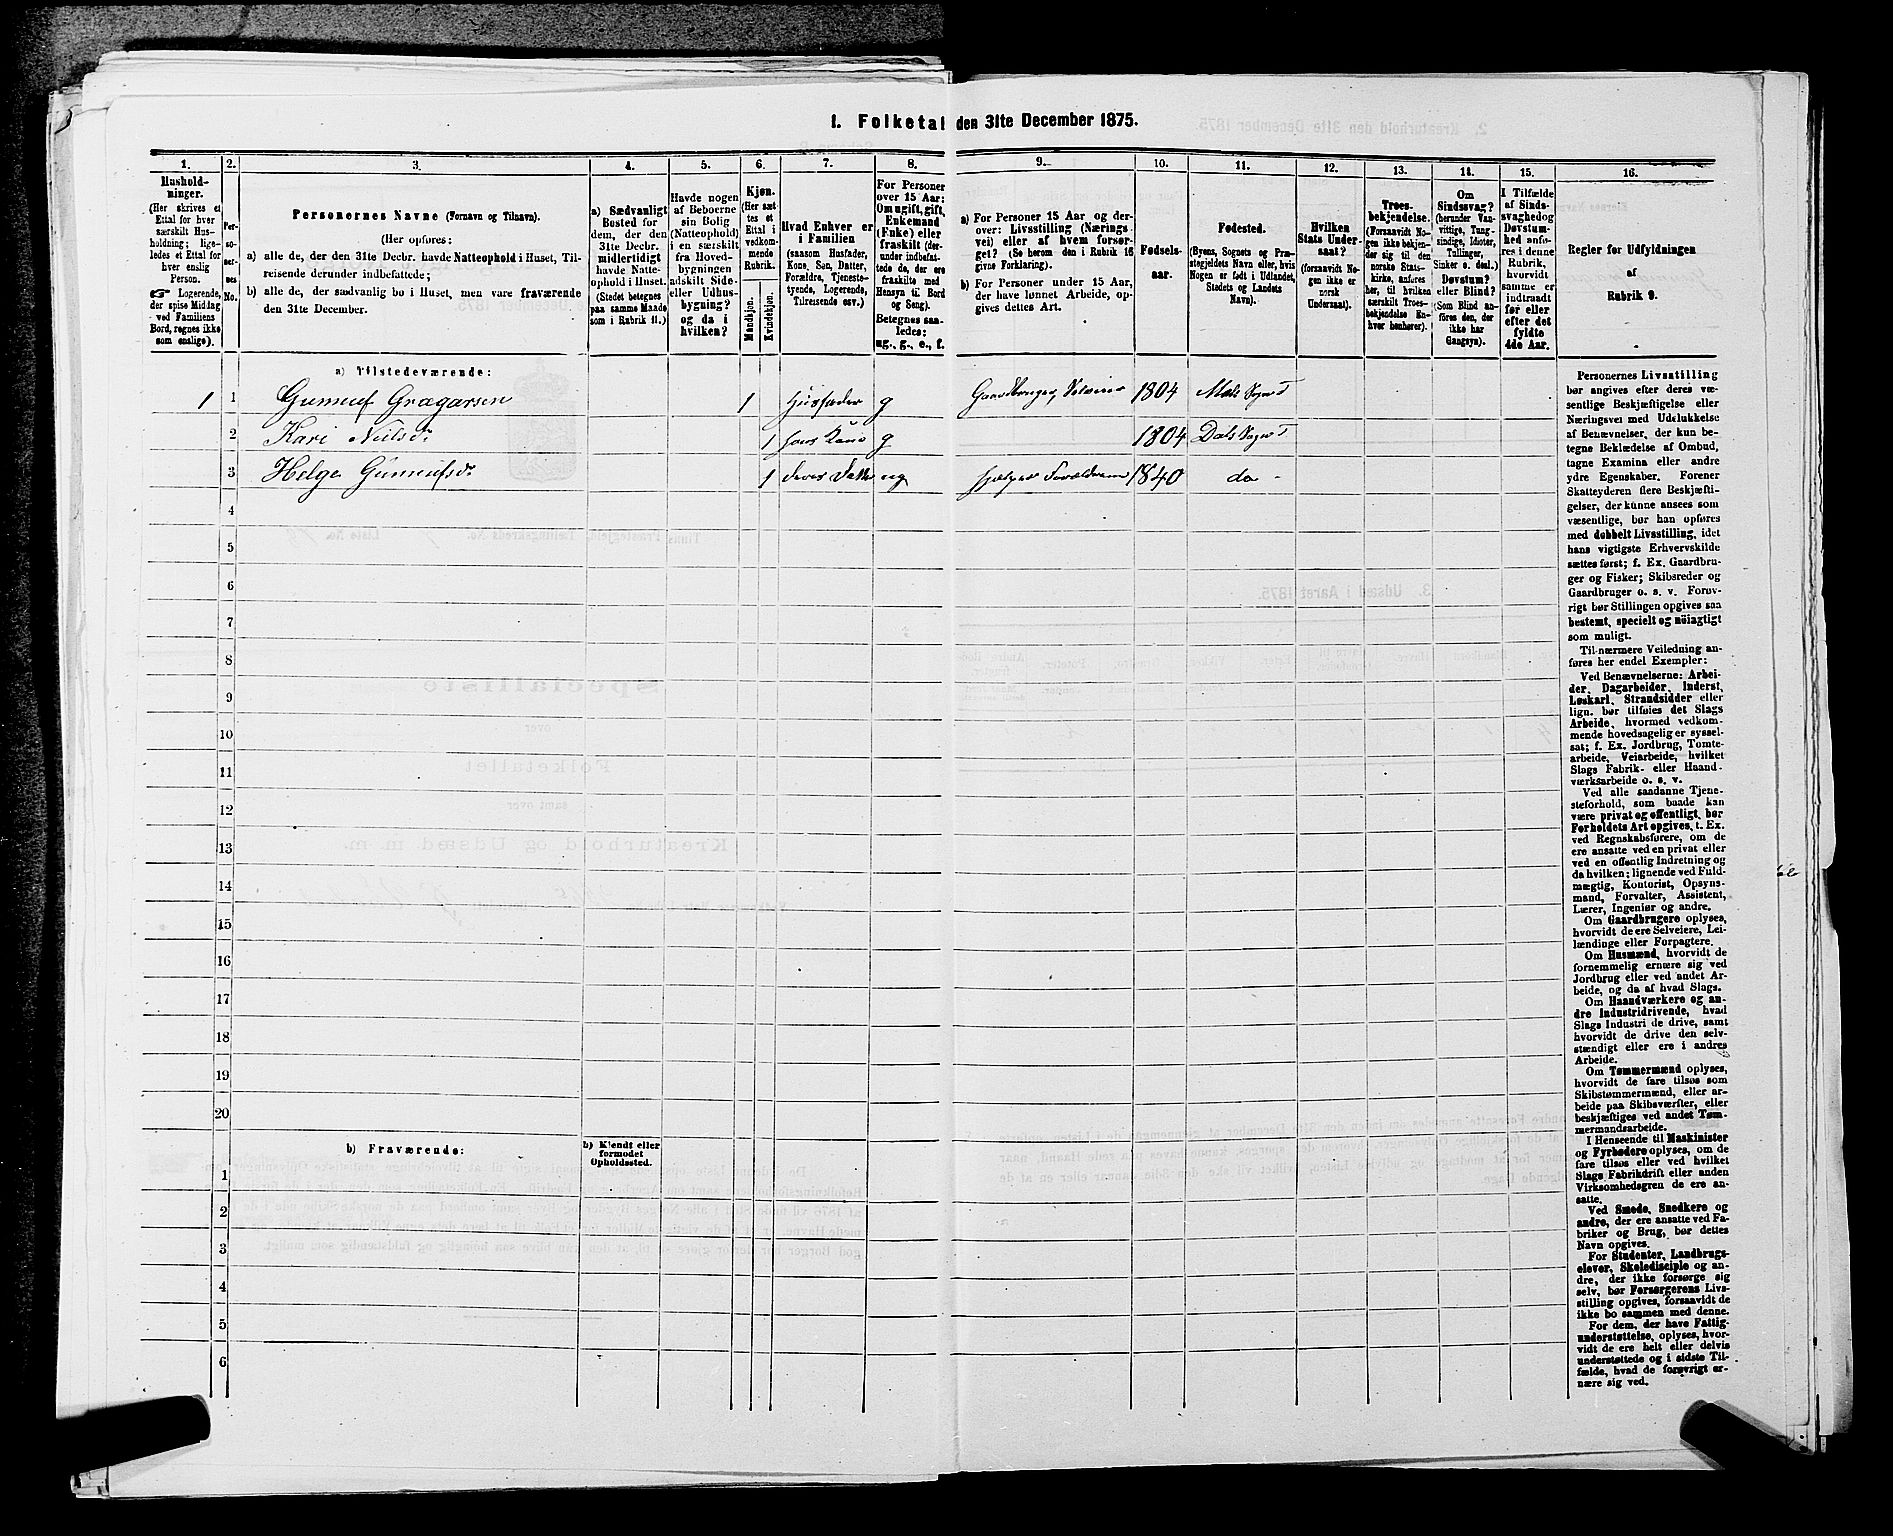 1. Folketal den 31te December 1875.
1. 2. 3. 4. 5. 6. 7. 8. 9. 10. 11. 12. 13. 14. 15. 16.
Hushold-
ninger.
(Her skrives et
Ettal for hver
særskilt Hus-
holdning; lige-
ledes et Ettal for
hver enslig
Person.
Logerende,
der spise Middag
ved Familiens
Bord, regnes ikke
som enslige).
Per-
so-
ner-
nes
No.
Personernes Navne (Fornavn og Tilnavn).
(Her opføres:
a) alle de, der den 31te Decbr. havde Natteophold i Huset, Til-
reisende derunder indbefattede;
b) alle de, der sædvanlig bo i Huset, men vare fraværende
den 31te December.
a) Sædvanligt
Bosted for
dem, der den
31te Decbr.
midlertidigt
havde Natte-
ophold i Huset.
(Stedet betegnes
paa samme Maade
som i Rubrik 11.)
Havde nogen
af Beboerne
sin Bolig
(Natteophold)
i en særskilt
fra Hoved-
bygningen
adskilt Side-
eller Udhus-
bygning?
og da i
hvilken?
Kjøn.
(Her sæt-
tes et
Ettal i
vedkom-
mende
Rubrik.
Mandkjøn.
Kvindekjøn.
Hvad Enhver er
i Familien
(saasom Husfader,
Kone, Søn, Datter,
Forældre, Tjeneste-
tyende, Logerende,
Tilreisende osv.)
For Personer
over 15 Aar:
Om ugift, gift,
Enkemand
(Enke) eller
fraskilt (der-
under indbefat-
tede de, der ere
fraskilte med
Hensyn til Bord
og Seng).
Betegnes saa-
ledes:
ug., g., e., f.
a) For Personer 15 Aar og der-
over: Livsstilling (Nærings-
vei) eller af hvem forsør-
get? (Se herom den i Rubrik 16
givne Forklaring).
b) For Personer under 15 Aar,
der have lønnet Arbeide, op-
gives dettes Art.
Fødsels-
aar.
Fødested.
(Byens, Sognets og Præ-
stegjeldets Navn eller, hvis
Nogen er født i Udlandet,
Stedets og Landets
Navn).
Hvilken
Stats Under-
saat?
(forsaavidt No-
gen ikke er
norsk
Undersaat).
Troes-
bekjendelse.
(Forsaavidt No-
gen ikke bekjen-
der sig til den
norske Stats-
kirke, anføres
her, til hvilken
særskilt Troes-
bekjendelse En-
hver henhører).
Om
Sindssvag?
(herunder Van-
vittige, Tung-
sindige, Idioter,
Tullinger,
Sinker o. desl.)
Døvstum?
eller Blind?
(Som Blind an-
føres den, der
ikke har
Gangsyn).
I Tilfælde
af Sinds-
svaghed og
Døvstum-
hed anfø-
res i denne
Rubrik,
hvorvidt
samme er
indtraadt
før eller
efter det
fyldte
4de Aar.
Regler for Udfyldningen
af
Rubrik 9.
a) Tilstedeværende:
1 1 Gunnuf Gregarsen 1 Husfader g Gaardbruger, Selveier 1804 Mæls Sogn
2 Kari Nielsd. 1 hans Kone g 1804 Dals Sogn
3 Helge Gunnufsd. 1 deres Datter ug hjelper Forældrene 1840 do -
4
5
6
7
8
9
10
11
12
13
14
15
16
17
18
19
20
b) Fraværende:
b) Kjendt eller
formodet
Opholdssted.
1
2
3
4
5
6
Personernes Livsstilling
bør angives efter deres væ-
sentlige Beskjæftigelse eller
Næringsvei med Udelukkelse
af Benævnelser, der kun be-
tegne Beklædelse af Ombud,
tagne Examina eller andre
ydre Egenskaber. Forener
Skatteyderen flere Beskjæfti-
gelser, der kunne ansees som
væsentlige, bør han opføres
med dobbelt Livsstilling, idet
hans vigtigste Erhvervskilde
sættes først; f. Ex. Gaardbru-
ger og Fisker; Skibsreder og
Gaardbruger o. s. v. Forøv-
rigt bør Stillingen opgives saa
bestemt, specielt og nøiagtigt
som muligt.
Til nærmere Veiledning an-
føres her endel Exempler:
Ved Benævnelserne: Arbei-
der, Dagarbeider, Inderst,
Løskarl, Strandsidder eller
lign. bør tilføies det Slags
Arbeide, hvormed vedkom-
mende hovedsagelig er syssel-
sat; f. Ex. Jordbrug, Tomte-
arbeide, Veiarbeide, hvilket
Slags Fabrik- eller Haand-
værksarbeide o. s. v.
Ved alle saadanne Tjene-
steforhold, som baade kan
være privat og offentligt, bør
Forholdets Art opgives, t. Ex.
ved Regnskabsførere, om de
ere ansatte ved en privat eller
ved en offentlig Indretning og
da hvilken; lignende ved Fuld-
mægtig, Kontorist, Opsyns-
mand, Forvalter, Assistent,
Lærer, Ingeniør og andre.
Om Gaardbrugere oplyses,
hvorvidt de ere Selveiere, Lei-
lændinge eller Forpagtere.
Om Husmænd, hvorvidt de
fornemmelig ernære sig ved
Jordbrug eller ved andet Ar-
beide, og da af hvad Slags.
Om Haandværkere og an-
dre Industridrivende, hvad
Slags Industri de drive, samt
hvorvidt de drive den selv-
stændigt eller ere i andres
Arbeide.
Om Tømmermænd oplyses,
hvorvidt de fare tilsøs som
Skibstømmermænd, eller ar-
beide paa Skibsværfter, eller
beskjæftiges ved andet Tøm-
mermandsarbeide.
I Henseende til Maskinister
og Fyrbødere oplyses, om de
fare tilsøs eller ved hvilket
Slags Fabrikdrift eller anden
Virksomhedsgren de ere an-
satte.
Ved Smede, Snedkere og
andre, der ere ansatte ved Fa-
briker og Brug, bør dettes
Navn opgives.
For Studenter, Landbrugs-
elever, Skoledisciple og an-
dre, der ikke forsørge sig
selv, bør Forsørgerens Livs-
stilling opgives, forsaavidt de
ikke bo sammen med denne.
For dem, der have Fattig-
understøttelse, oplyses, hvor-
vidt de ere helt eller delvis
understøttede og i sidste Til-
fælde, hvad de forøvrigt er-
nære sig ved.